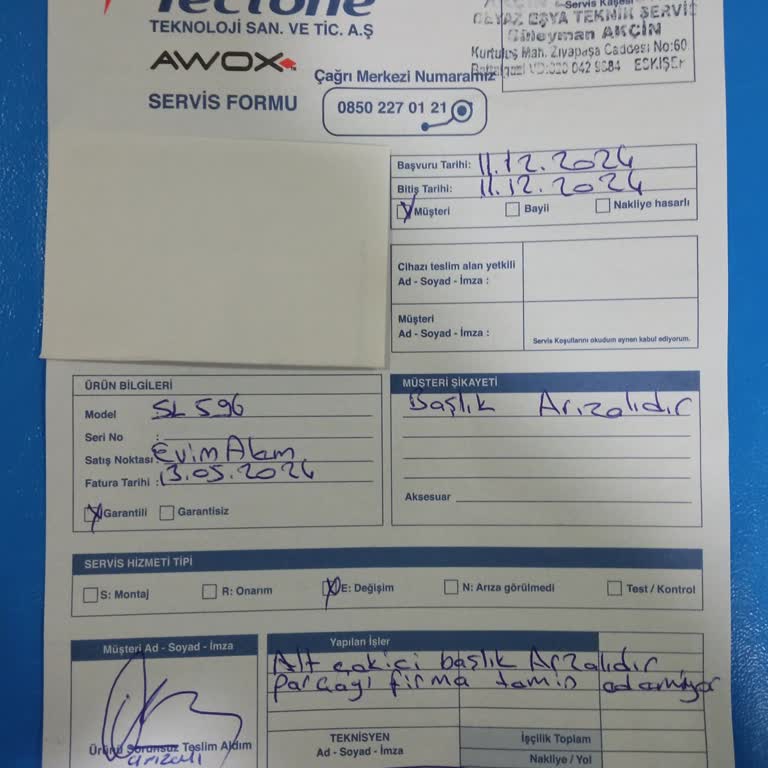 Tectone
TEKNOLOJİ SAN. VE TİC. A.Ş
AWOX
SERVİS FORMU
Çağrı Merkezi Numaramız
0850 227 01 21
Servis Kaşesi
BEYAZ EŞYA TEKNİK SERVİS
Süleyman AKÇİN
Kurtuluş Mah. Ziyapaşa Caddesi No:60
042 9684 ESKİŞE
Başvuru Tarihi: 11.12.2024
Bitiş Tarihi: 11.12.2024
Müşteri Bayii Nakliye hasarlı
Cihazı teslim alan yetkili
Ad - Soyad - İmza :
Müşteri
Ad - Soyad - İmza :
Servis Koşullarını okudum aynen kabul ediyorum.
ÜRÜN BİLGİLERİ
Model SL 596
Seri No :
Satış Noktası: Evim Alam
Fatura Tarihi : 13.05.2024
Garantili Garantisiz
MÜŞTERİ ŞİKAYETİ
Başlık Arızalıdır
Aksesuar
SERVİS HİZMETİ TİPİ
S: Montaj R: Onarım E: Değişim N: Arıza görülmedi Test / Kontrol
Müşteri Ad - Soyad - İmza
Ürünü Sorunsuz Teslim Aldım
arızalı
Yapılan İşler
Alt çakici başlık Arzalıdır
parçayı firma tamin edamıyor
TEKNİSYEN
Ad - Soyad - İmza
İşçilik Toplam
Nakliye / Yol